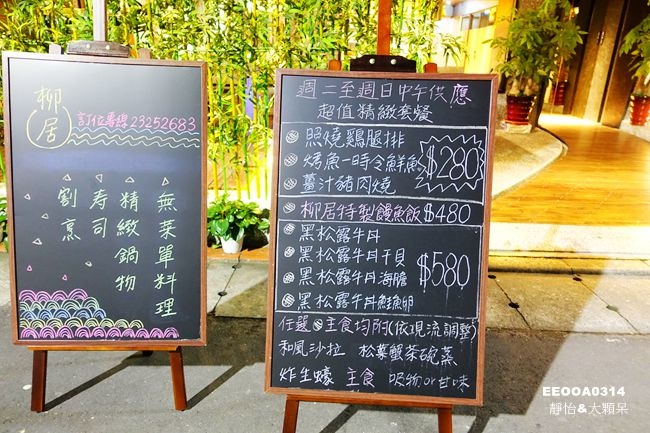 柳居
訂位專線23252683
無菜單料理
精緻鍋物
壽司
割烹
週二至週日中午供應
超值精緻套餐
照燒鷄腿排
烤魚-時令鮮魚
薑汁豬肉燒
$280
柳居特製饅魚飯$480
黑松露牛丼
黑松露牛丼干貝
黑松露牛丼海膽
黑松露牛丼鮭魚卵
$580
任選 主食均附(依現流調整)
和風沙拉 松葉蟹茶碗蒸
炸生蠔 主食 吸物or甘味
EEOOA0314
靜怡&大顆呆